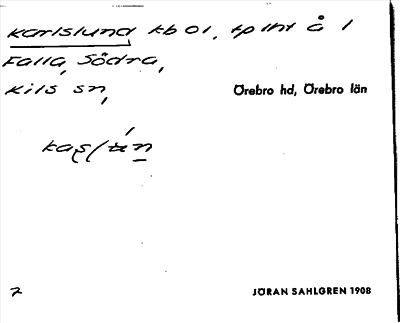 Karlslund kb 01, tp int å 1
Falla, Södra,
Kils sn,
Örebro hd, Örebro län
7
JÖRAN SAHLGREN 1908